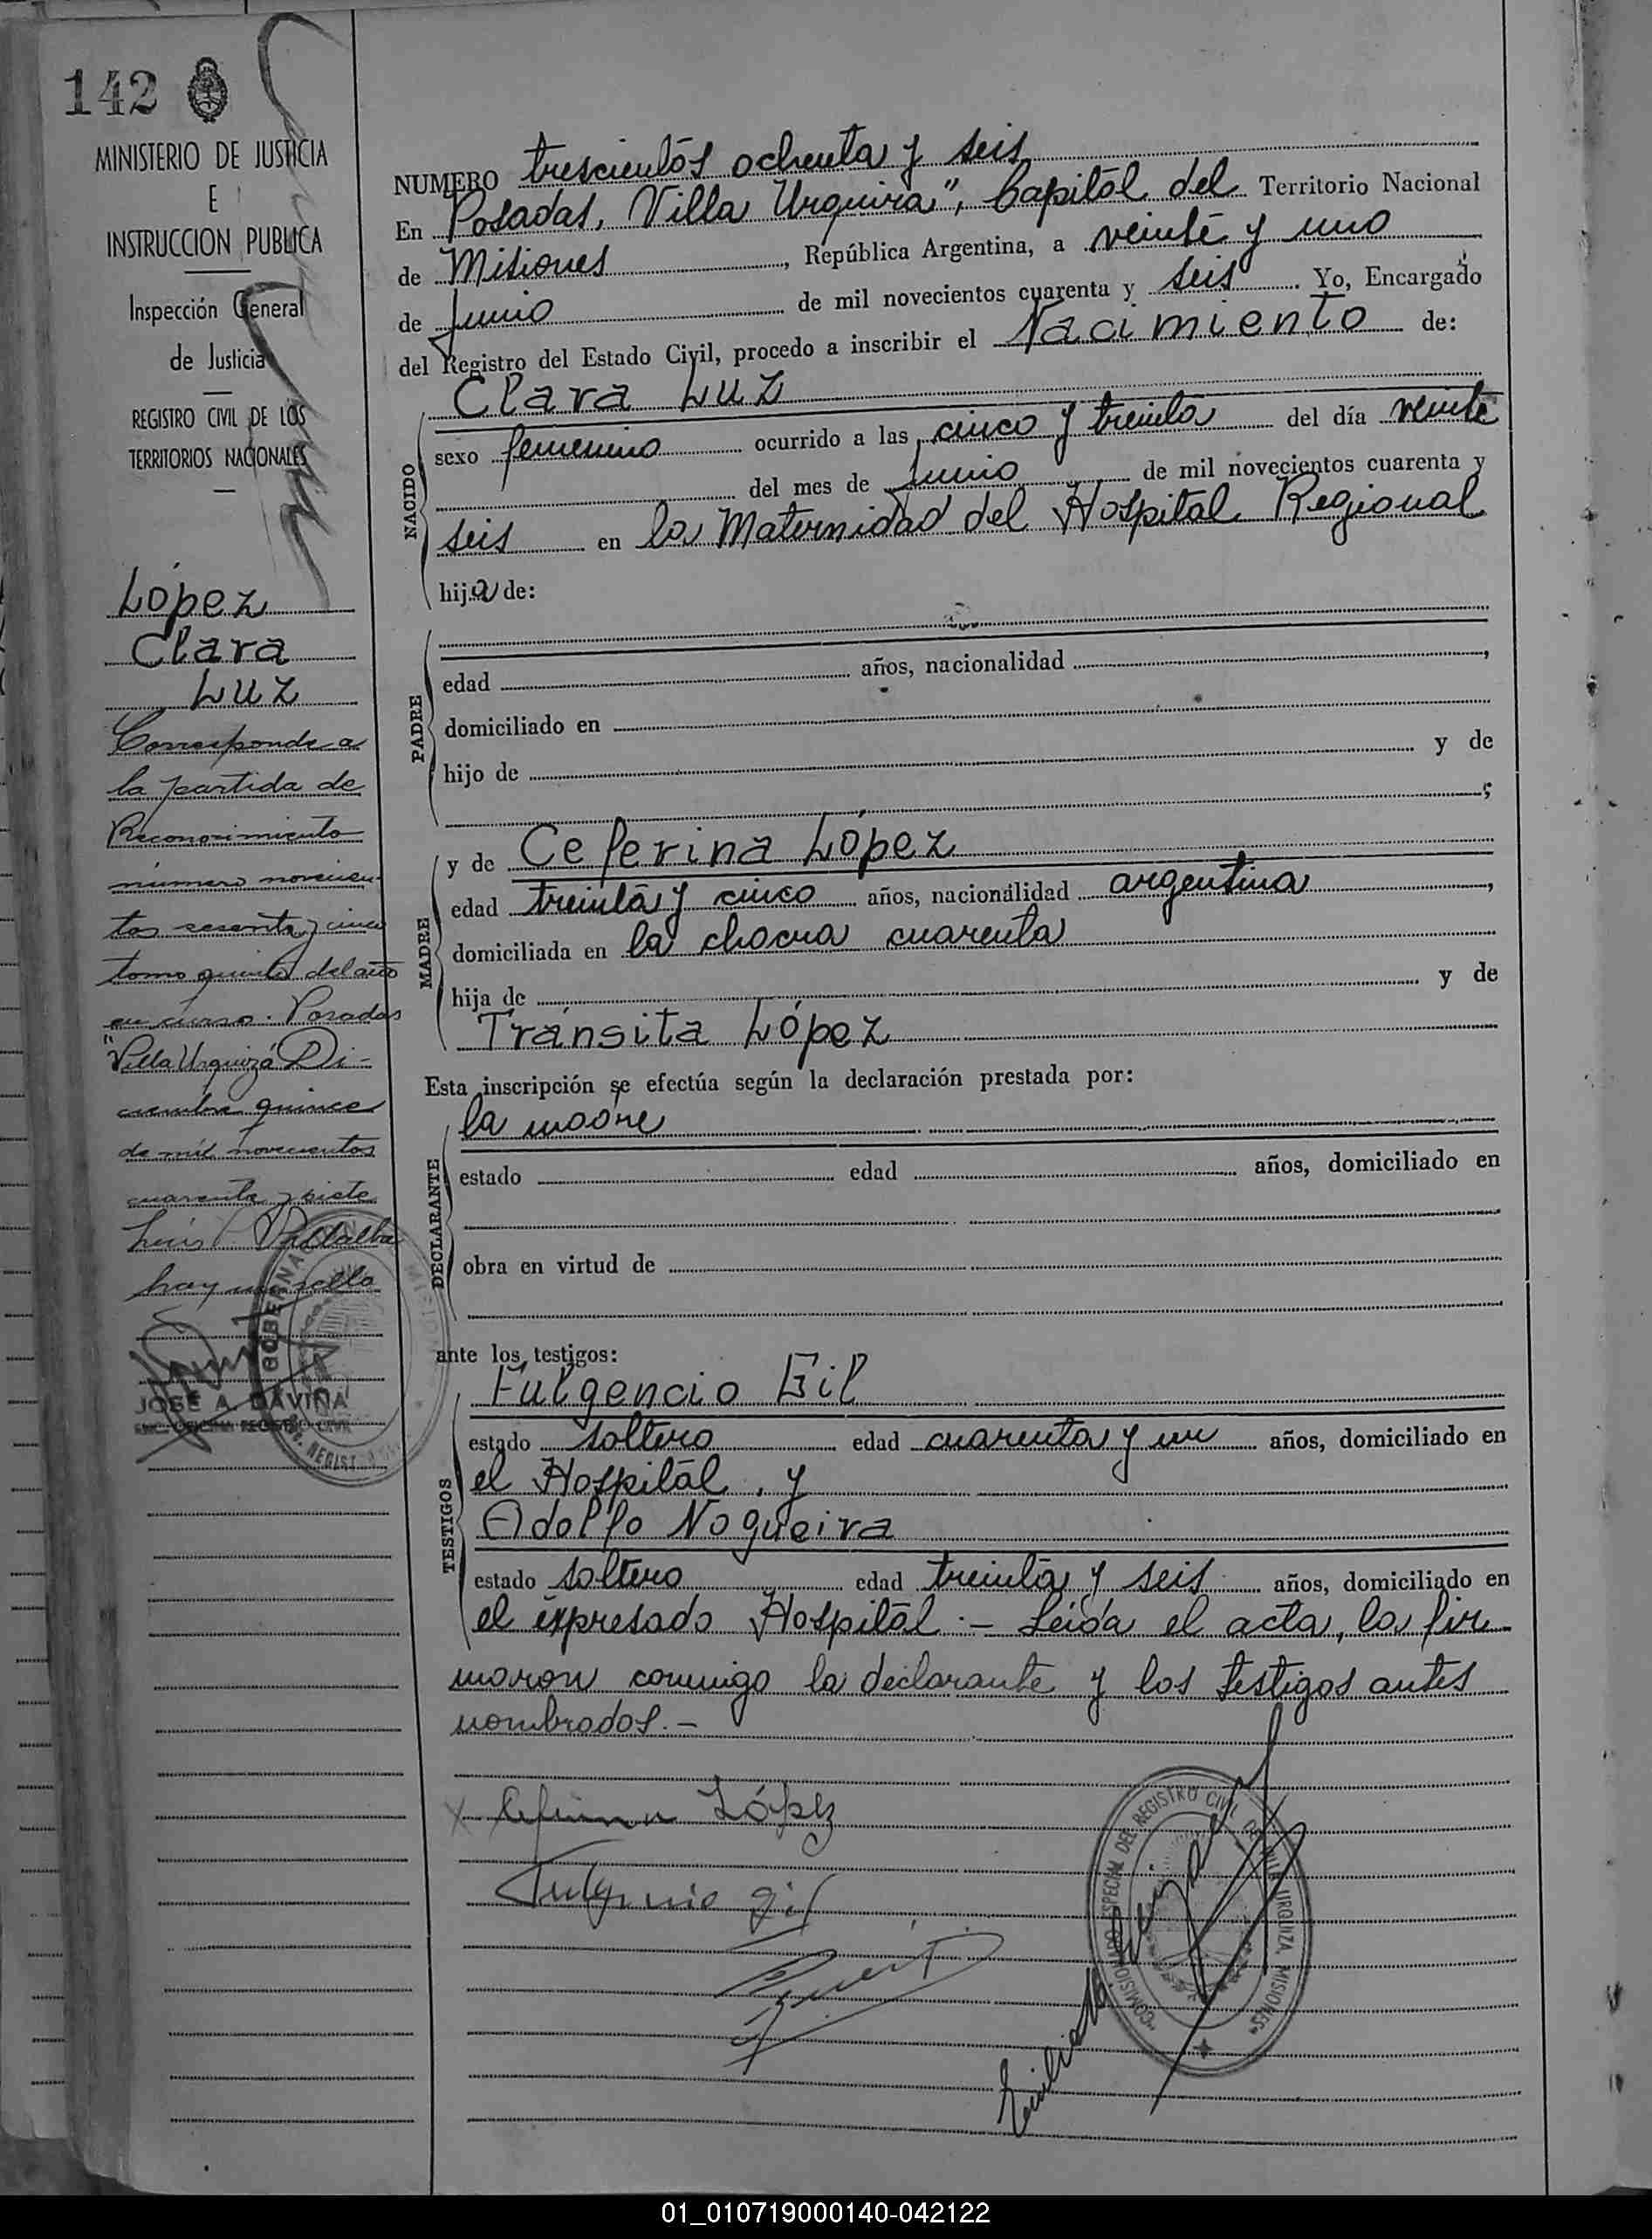 142
MINISTERIO DE JUSTICIA
E
INSTRUCCION PUBLICA
Inspección General
de Justicia
REGISTRO CIVIL DE LOS
TERRITORIOS NACIONALES
López
Clara
Luz
Corresponde a
la partida de
Reconocimiento
número novecien-
tos sesenta y cinco
tomo quinto del año
en curso. Posadas
"Villa Urquiza" Di-
ciembre quince
de mil novecientos
cuarenta y siete
Luis Villalba
hay un sello
JOSE A. DAVIÑA
ENC. OFICINA REGISTRO CIVIL
NUMERO trescientos ochenta y seis
En Posadas, Villa Urquiza", Capital del Territorio Nacional
de Misiones, República Argentina, a veinte y uno
de Junio de mil novecientos cuarenta y seis. Yo, Encargado
del Registro del Estado Civil, procedo a inscribir el Nacimiento de:
NACIDO
Clara Luz
sexo femenino ocurrido a las cinco y treinta del día veinte
del mes de Junio de mil novecientos cuarenta y
seis en la Maternidad del Hospital Regional
hija de:
PADRE
edad años, nacionalidad ,
domiciliado en
hijo de y de
;
MADRE
y de Ceferina López
edad treinta y cinco años, nacionalidad argentina,
domiciliada en la chacra cuarenta
hija de y de
Tránsita López
Esta inscripción se efectúa según la declaración prestada por:
DECLARANTE
la madre
estado edad años, domiciliado en
obra en virtud de
ante los testigos:
TESTIGOS
Fulgencio Gil
estado soltero edad cuarenta y un años, domiciliado en
el Hospital, y
Adolfo Nogueira
estado soltero edad treinta y seis años, domiciliado en
el expresado Hospital.- Leída el acta, la fir-
maron conmigo la declarante y los testigos antes
nombrados.-
x Ceferina López
Fulgencio Gil
COMISIONADO ESPECIAL DEL REGISTRO CIVIL DE VILLA URQUIZA, MISIONES
01_010719000140-042122